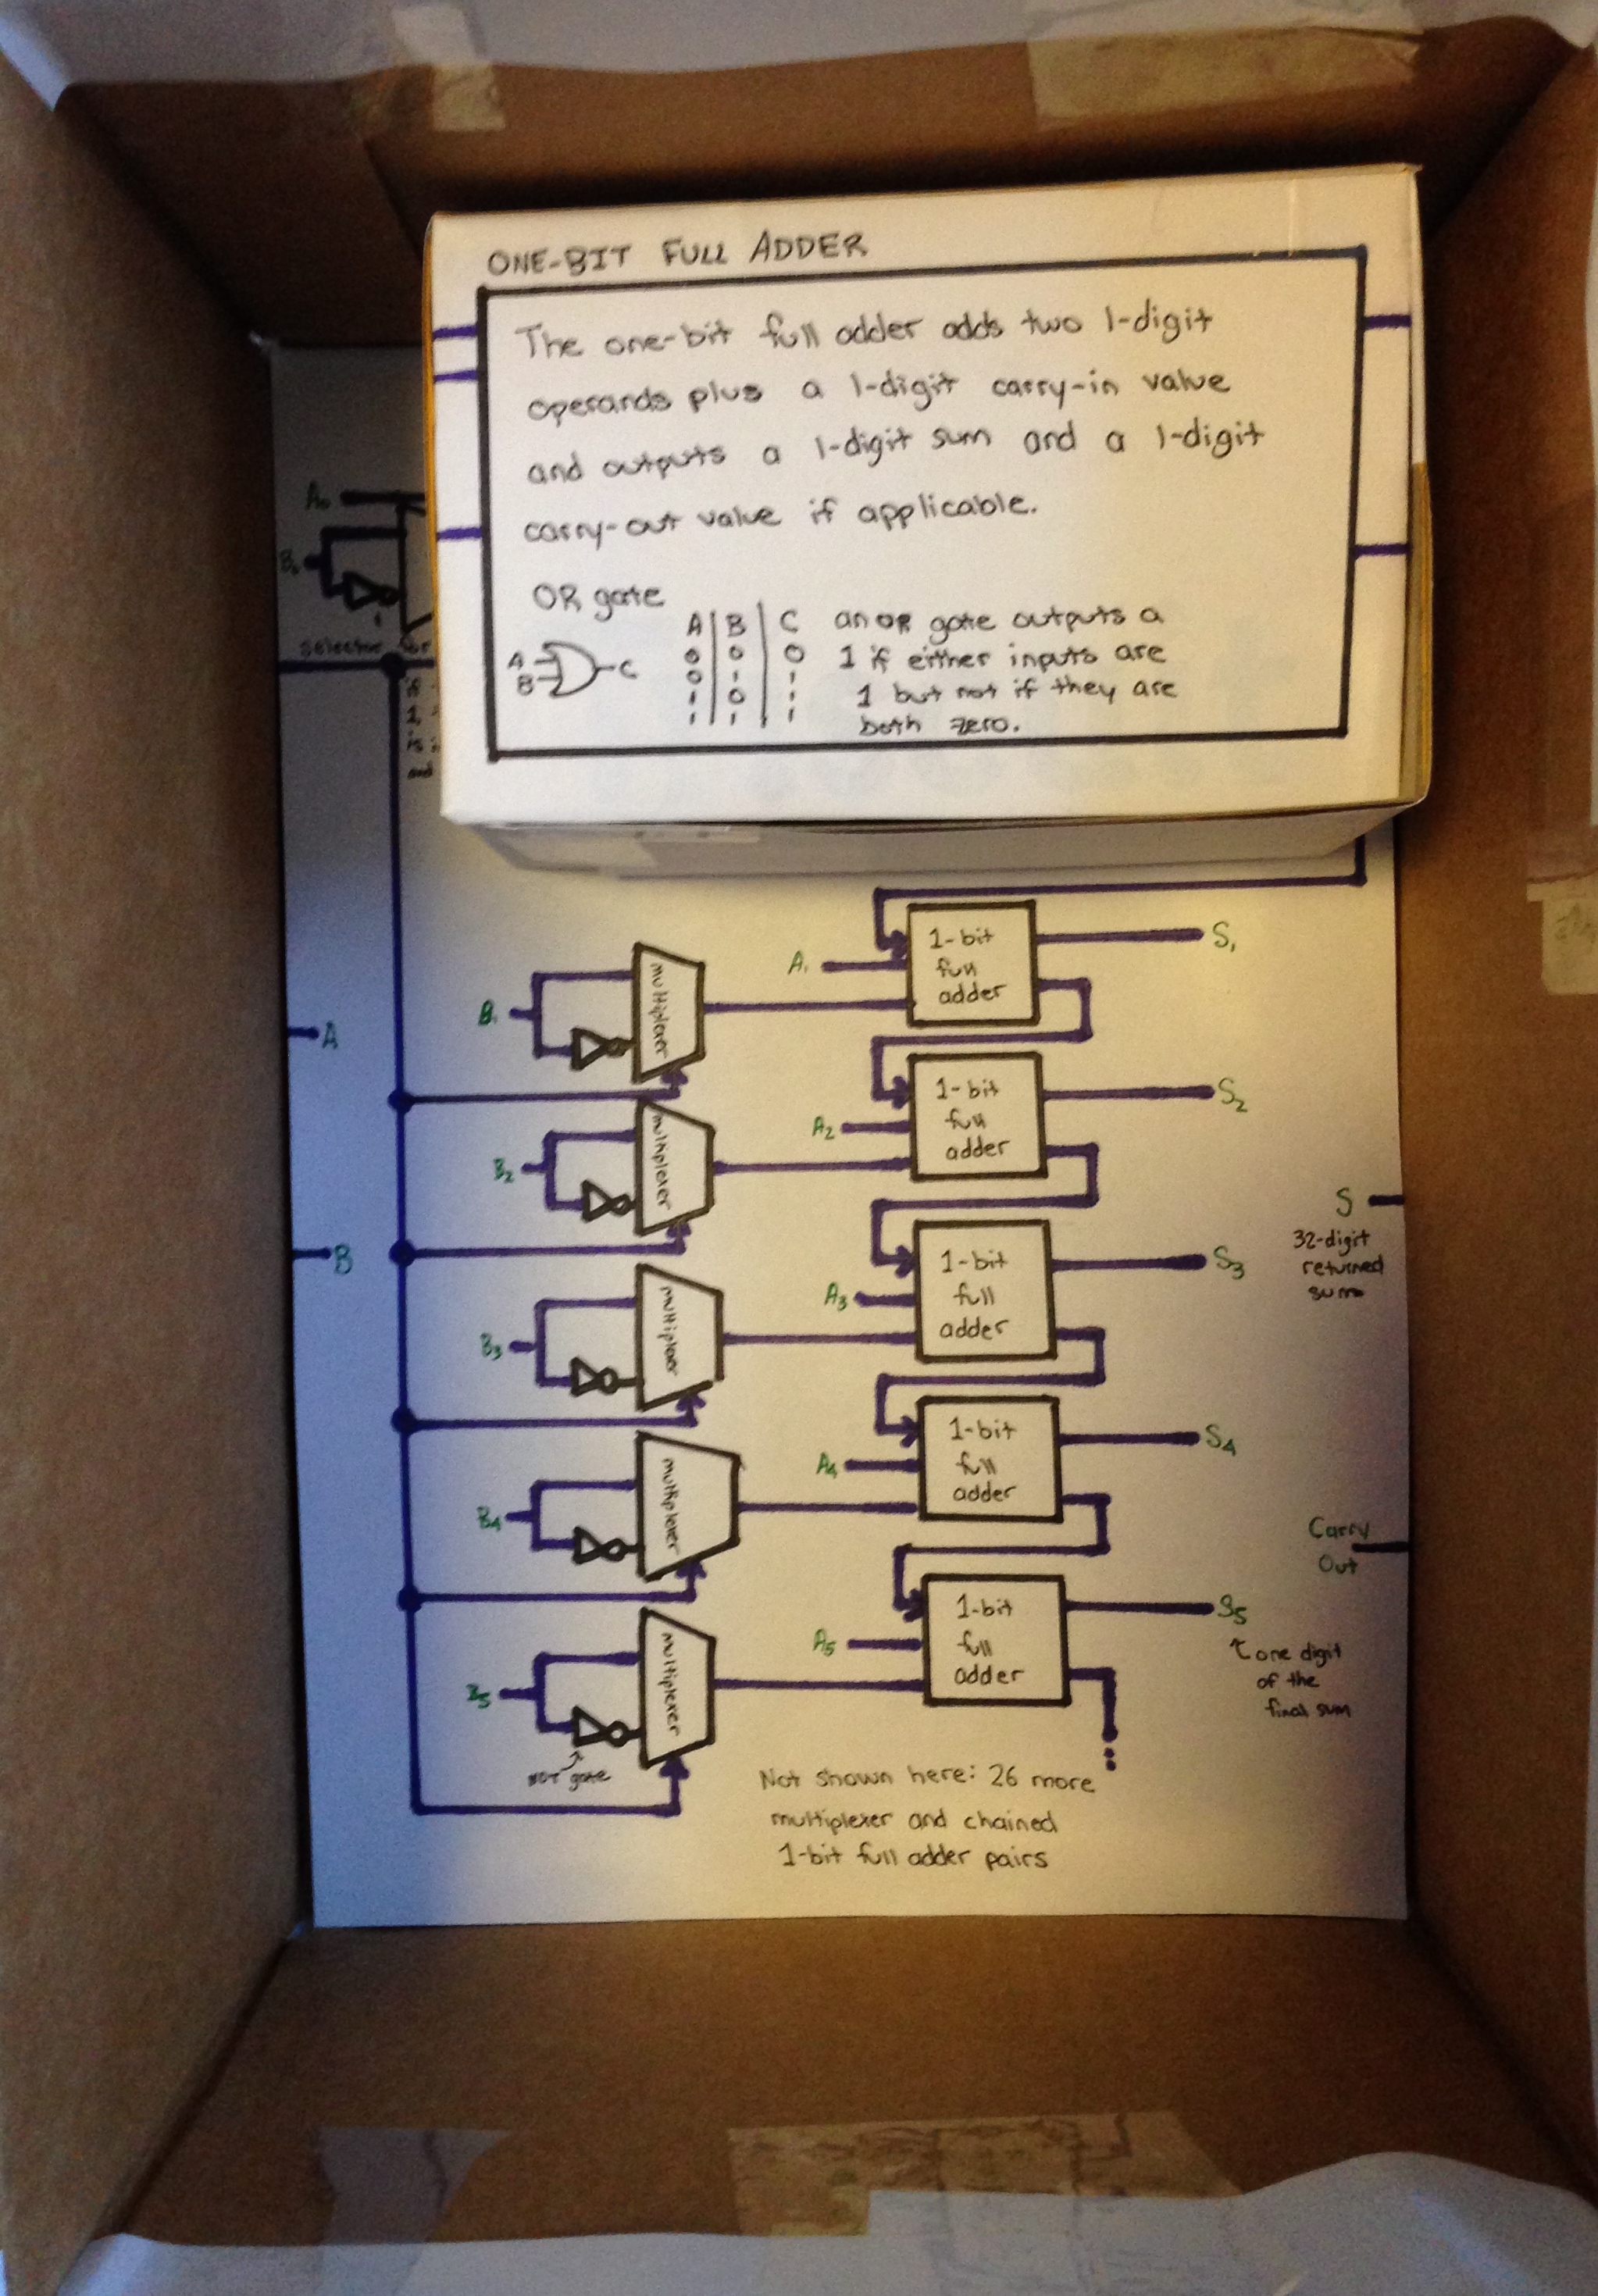 ONE-BIT FULL ADDER
The one-bit full adder adds two 1-digit
operands plus a 1-digit carry-in value
and outputs a 1-digit sum and a 1-digit
carry-out value if applicable.
OR gate
A B C
0 0 0
0 1 1
1 0 1
1 1 1
A
B
C
an OR gate outputs a
1 if either inputs are
1 but not if they are
both zero.
A₀
B₀
selector for
if
1,
is
and
A
B
B₁
multiplexer
A₁
1-bit
full
adder
S₁
B₂
multiplexer
A₂
1-bit
full
adder
S₂
B₃
multiplexer
A₃
1-bit
full
adder
S₃
S
32-digit
returned
sum
B₄
multiplexer
A₄
1-bit
full
adder
S₄
Carry
Out
B₅
NOT gate
multiplexer
A₅
1-bit
full
adder
S₅
one digit
of the
final sum
Not shown here: 26 more
multiplexer and chained
1-bit full adder pairs